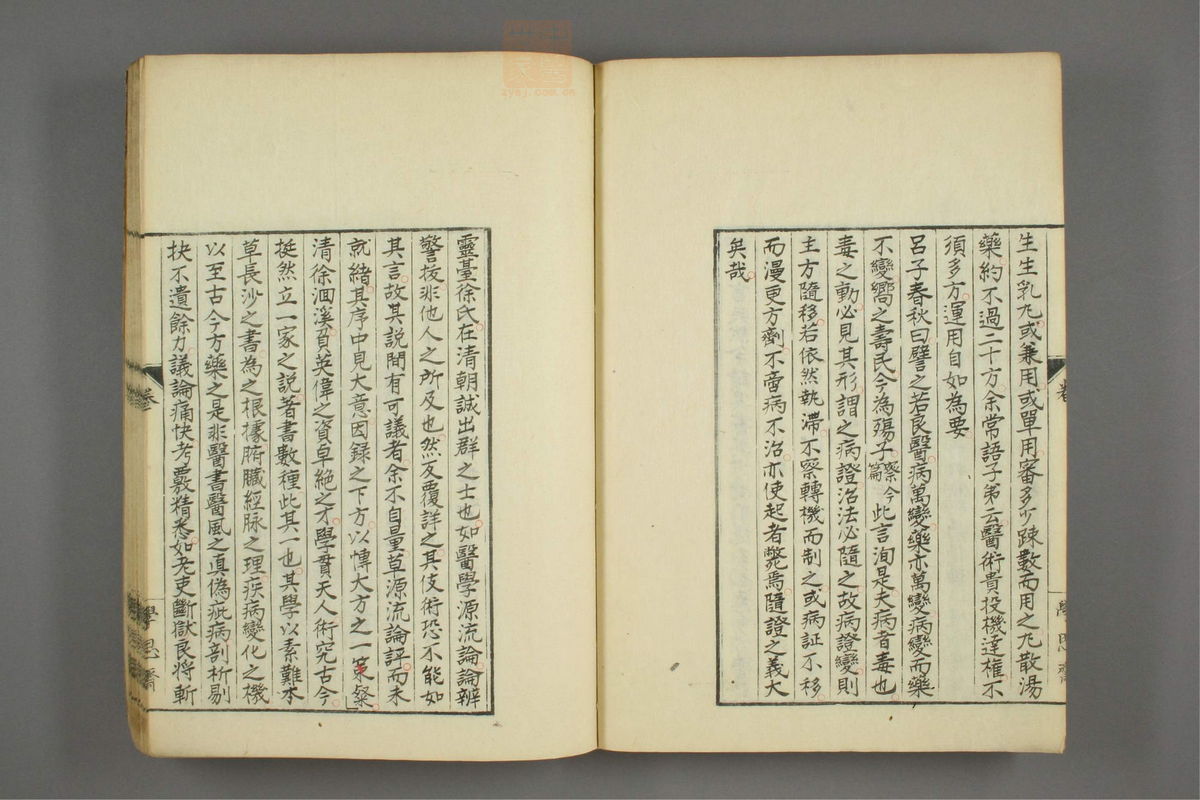 生生乳丸或兼用或單用審多少疎數而用之丸散湯
藥約不過二十方余常語子弟云醫術貴投機達權不
須多方運用自如為要
呂子春秋曰譬之若良醫病萬變藥亦萬變病變而藥
不變嚮之壽民今為殤子察今篇此言洵是夫病者毒也
毒之動必見其形謂之病證治法必隨之故病證變則
主方隨移若依然執滯不察轉機而制之或病証不移
而漫更方劑不啻病不治亦使起者斃焉隨證之義大
矣哉
靈臺徐氏在清朝誠出群之士也如醫學源流論論辨
警拔非他人之所及也然反覆詳之其伎術恐不能如
其言故其說間有可議者余不自量草源流論評而未
就緒其序中見大意因錄之下方以慱大方之一策粲
清徐洄溪負英偉之資卓絶之才學貫天人術究古今
挺然立一家之說著書數種此其一也其學以素難本
草長沙之書為之根據腑臟經脉之理疾病變化之機
以至古今方藥之是非醫書醫風之真偽疵病剖析剔
抉不遺餘力議論痛快考覈精悉如老吏斷獄良將斬
學思齋
zysj.com.cn